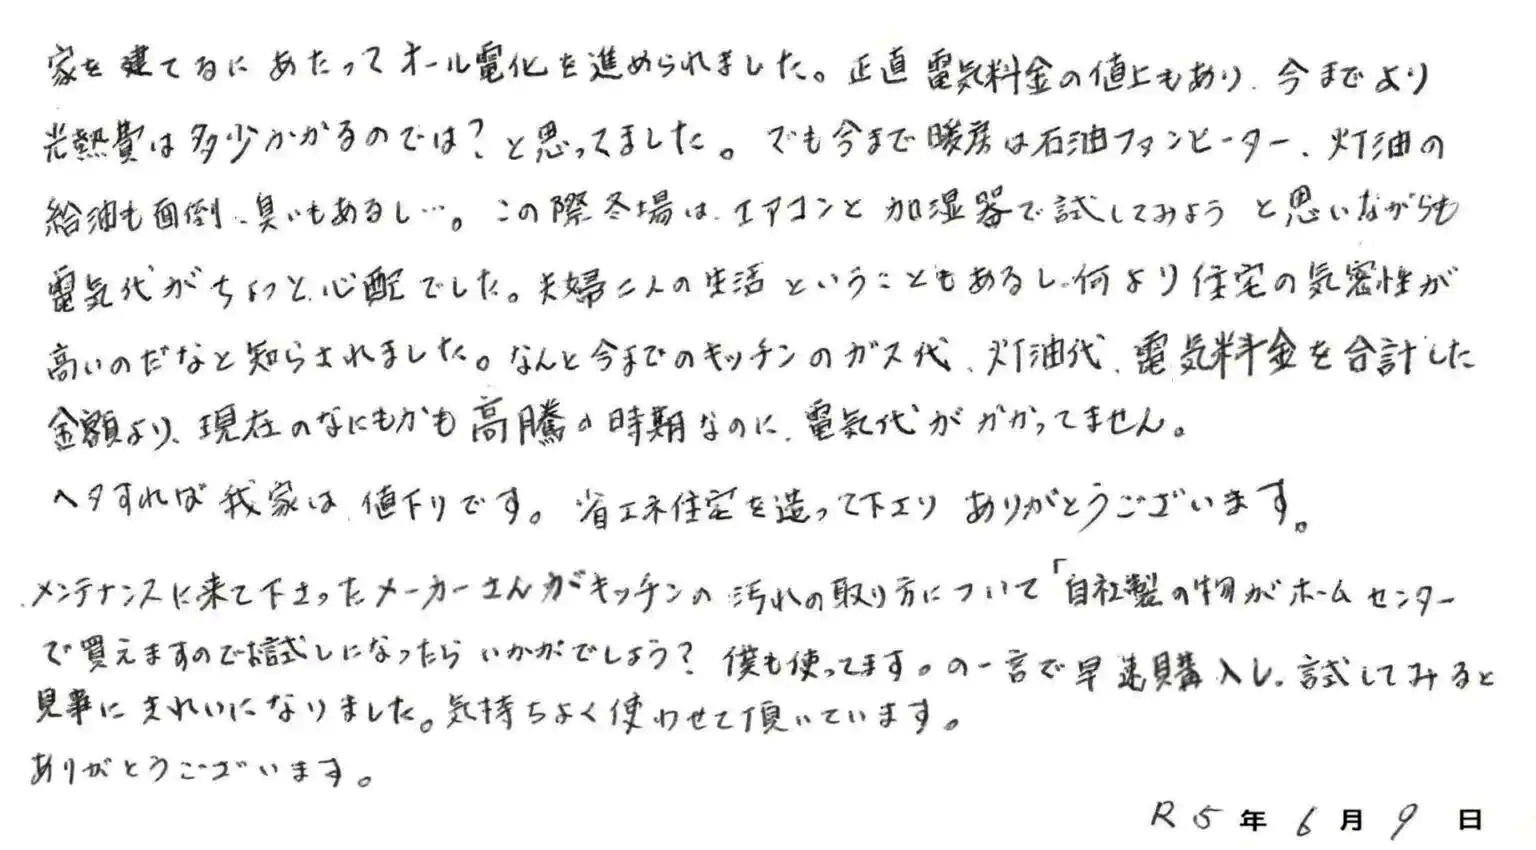 家を建てるにあたってオール電化を進められました。正直電気料金の値上もあり、今までより
光熱費は多少かかるのでは?と思ってました。でも今まで暖房は石油ファンヒーター、灯油の
給油も面倒、臭いもあるし…。この際冬場は、エアコンと加湿器で試してみようと思いながらも
電気代がちょっと心配でした。夫婦二人の生活ということもあるし、何より住宅の気密性が
高いのだなと知らされました。なんと今までのキッチンのガス代、灯油代、電気料金を合計した
金額より、現在のなにもかも高騰の時期なのに、電気代がかかってません。
ヘタすれば我家は、値下りです。省エネ住宅を造って下エリありがとうございます。
メンテナンスに来て下さったメーカーさんがキッチンの汚れの取り方について「自社製の物がホームセンター
で買えますのでお試しになったらいかがでしょう?僕も使ってます。の一言で早速購入し、試してみると
見事にきれいになりました。気持ちよく使わせて頂いています。
ありがとうございます。
R5年6月9日